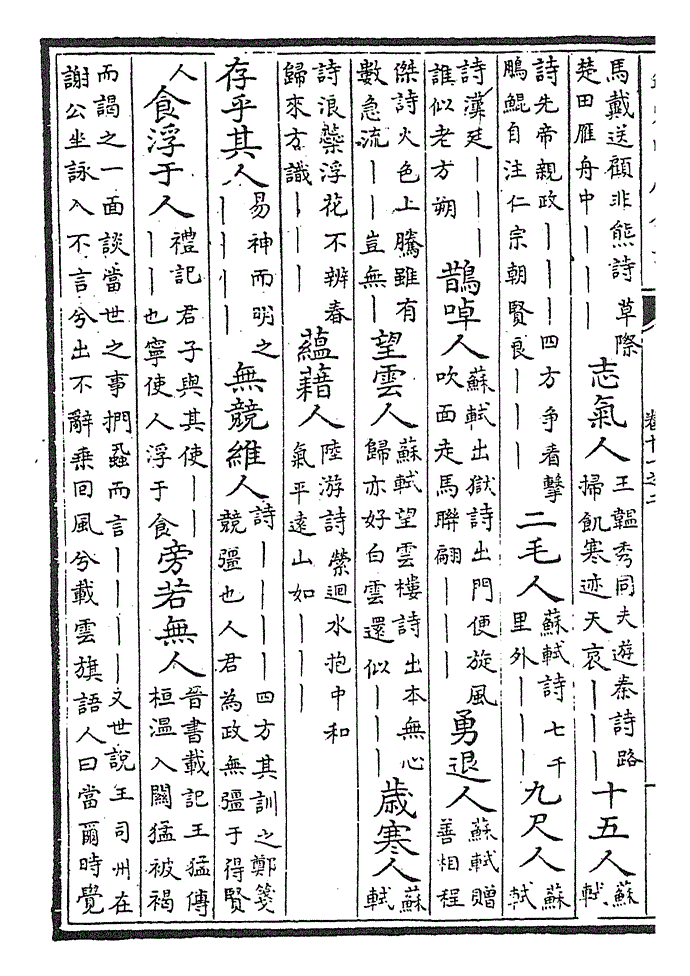 馬戴送顧非熊詩草際楚田雁舟中｜｜｜ 志氣人 王韞秀同夫遊秦詩路掃飢寒迹天哀｜｜｜ 十五人 蘇軾
詩先帝親政｜｜｜四方爭看擊鵬鯤自注仁宗朝賢良｜｜｜ 二毛人 蘇軾詩七千里外｜｜｜ 九尺人 蘇軾
詩漢廷｜｜｜誰似老方朔 鵲啅人 蘇軾出獄詩出門便旋風吹面走馬聯翩｜｜｜ 勇退人 蘇軾贈善相程
傑詩火色上騰雖有數急流｜｜豈無｜ 望雲人 蘇軾望雲樓詩出本無心歸亦好白雲還似｜｜｜ 歲寒人 蘇軾
詩浪蘂浮花不辨春歸來方識｜｜｜ 蘊藉人 陸游詩縈迴水抱中和氣平遠山如｜｜｜
存乎其人 易神而明之｜｜｜｜ 無競維人 詩｜｜｜｜四方其訓之鄭箋競彊也人君為政無彊于得賢
人 食浮于人 禮記君子與其使｜｜｜｜也寧使人浮于食 旁若無人 晉書載記王猛傳桓溫入關猛被褐
而謁之一面談當世之事捫蝨而言｜｜｜｜又世說王司州在謝公坐詠入不言兮出不辭乘回風兮載雲旗語人曰當爾時覺
卷十一之二